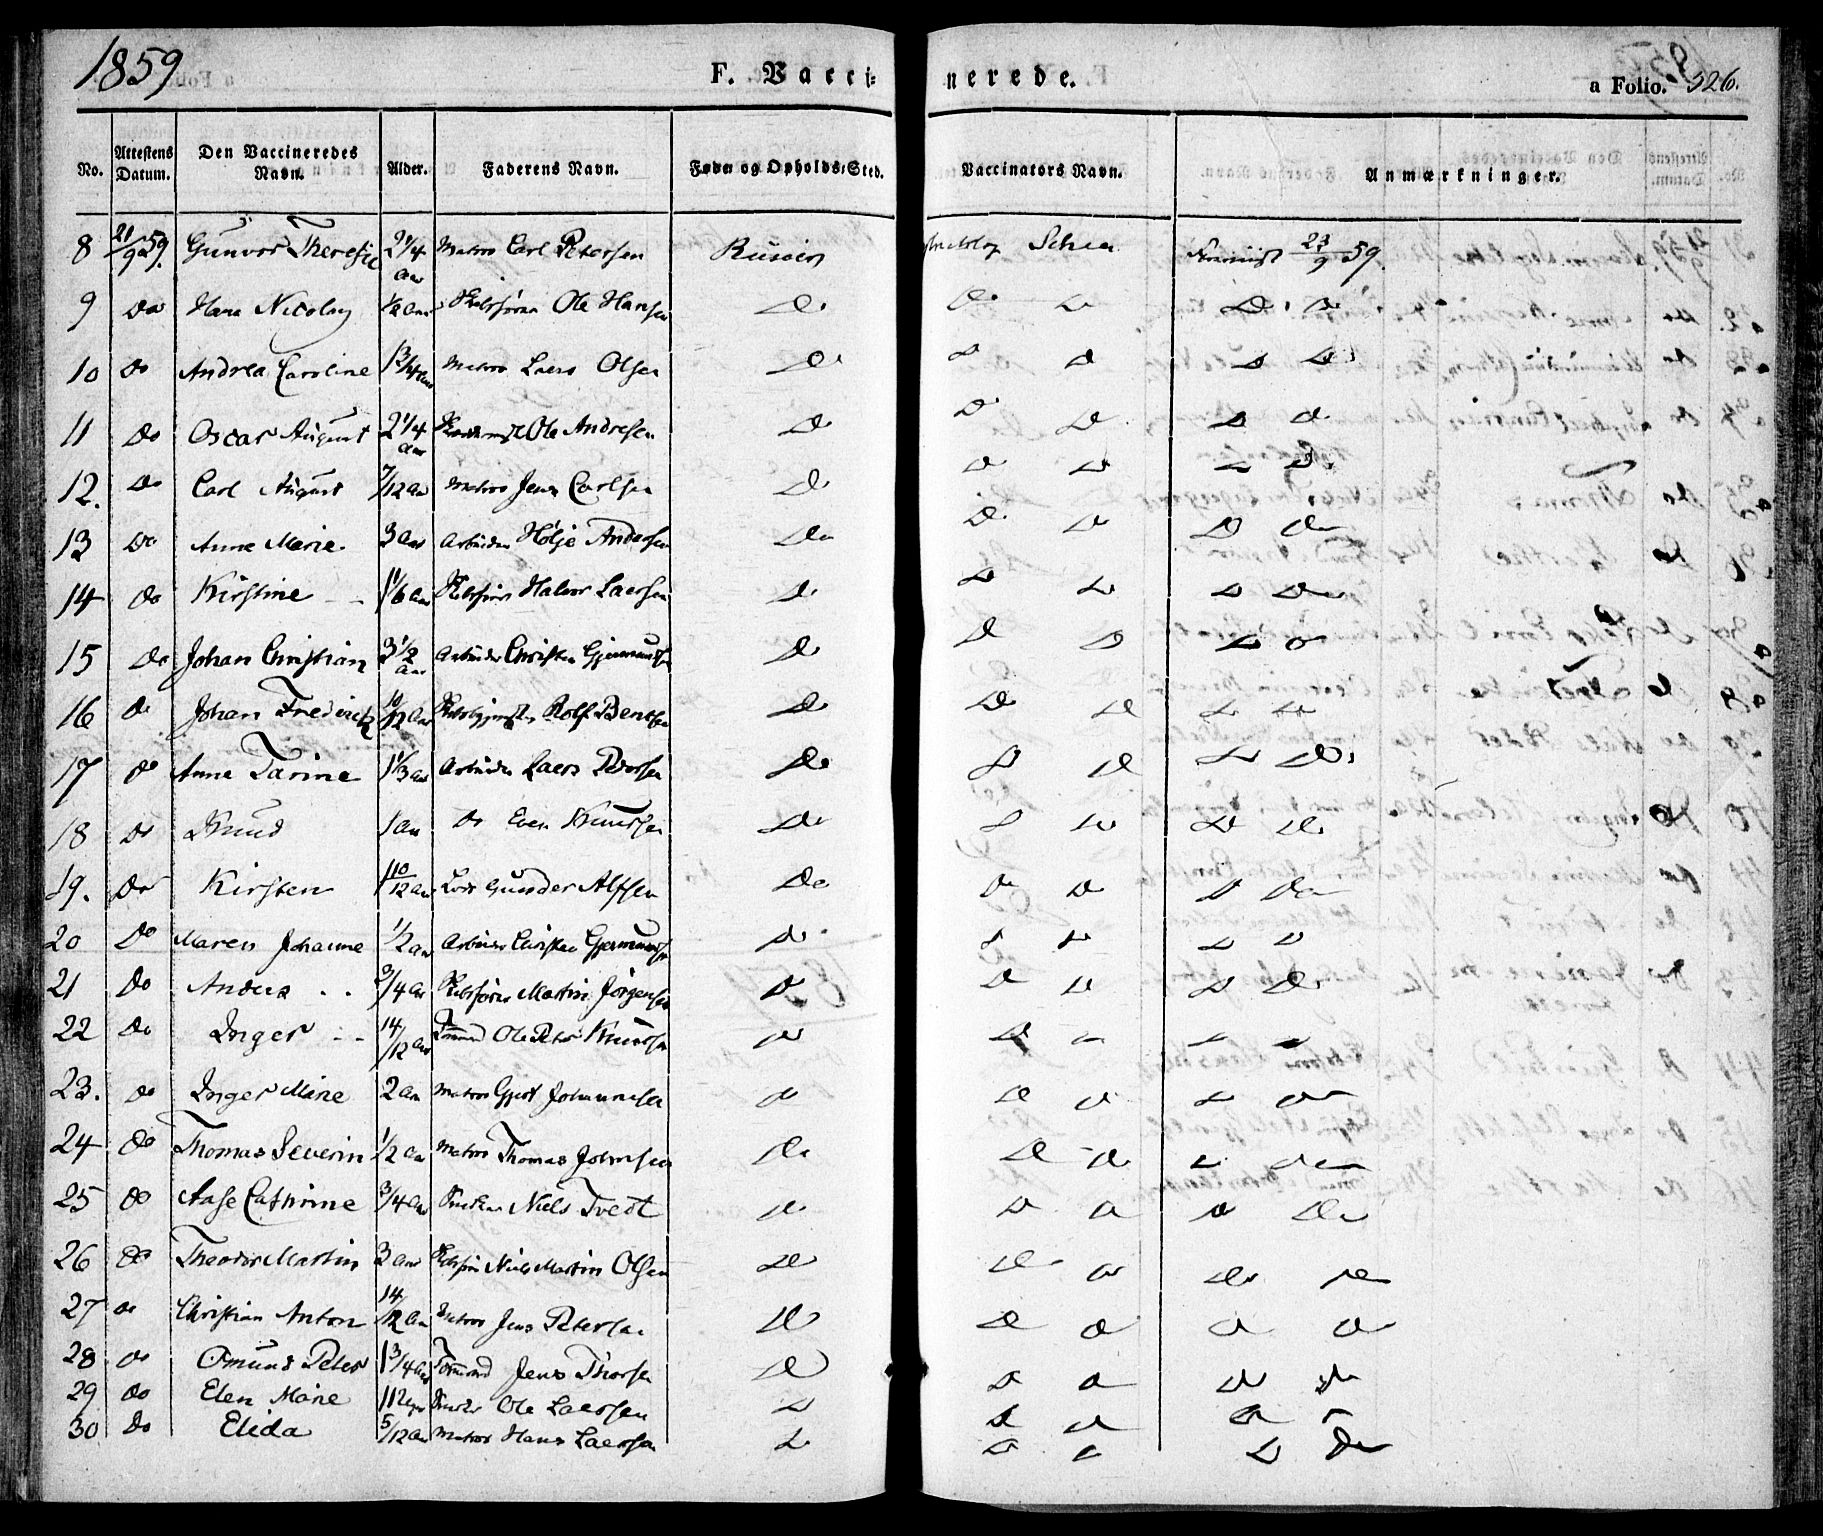 1859
F. Vacci-
nerede.
a Folio. 326.
No.
Attestens Datum.
Den Vaccineredes Navn.
Alder.
Faderens Navn.
Føde og Opholds-Sted.
Vaccinators Navn.
Anmærkninger.
8 21/9 59. Gunvor Theresie 2 1/4 Aar Matros Carl Petersen Riisøen Schea 23/9 59.
9 Do Hans Nicolay 1/2 Aar Ole Hansen Do Do Do Do Do
10 Do Andrea Caroline 1 3/4 Aar Matros Laers Olsen Do Do Do Do Do
11 Do Oscar August 2 1/4 Aar Ole Andresen Do Do Do Do Do
12. Do Carl August 7/12 Aar Matros Jens Carlsen Do Do Do Do Do
13 Do Anne Marie 3 Aar Arbeider Hølje Andersen Do Do Do Do Do
14 Do Kirstine 1 1/6 Aar Halvor Laersen Do Do Do Do Do
15 Do Johan Christian 3 1/2 Aar Arbeider Christen Gjermundsen Do Do Do Do Do
16 Do Johan Fredrick 10/12 Aar Rolf Bentsen Do Do Do Do Do
17 Do Anne Tarine 1 1/3 Aar Arbeider Laers Pedersen Do Do Do Do Do
18 Do Knud 1 Aar Do Even Knudsen Do Do Do Do Do
19. Do Kirsten 1 10/12 Aar Lods Gunder Alfsen Do Do Do Do Do
20 Do Maren Johanne 1/2 Aar Arbeider Christen Gjermundsen Do Do Do Do Do
21 Do Anders 3/4 Aar Martin Jörgensen Do Do Do Do Do
22 Do Inger 14/12 Aar Tømmermd Ole Peter Knudsen Do Do Do Do Do
23. Do Inger Marie 2 Aar Matros Gjert Johannesen Do Do Do Do Do
24 Do Thomas Severin 1/2 Aar Matros Thomas Johnsen Do Do Do Do Do
25 Do Aase Cathrine 3/4 Aar Niels Tvedt Do Do Do Do Do
26 Do Theodor Martin 3 Aar Niels Martin Olsen Do Do Do Do Do
27 Do Christian Anton 14/12 Aar Matros Jens Petersen Do Do Do Do Do
28 Do Omund Peter 1 3/4 Aar Tømmermd Jens Thorsen Do Do Do Do Do
29 Do Elen Marie Ole Laersen Do Do Do Do Do
30 Do Elida 5/12 Aar Matros Hans Laersen Do Do Do Do Do